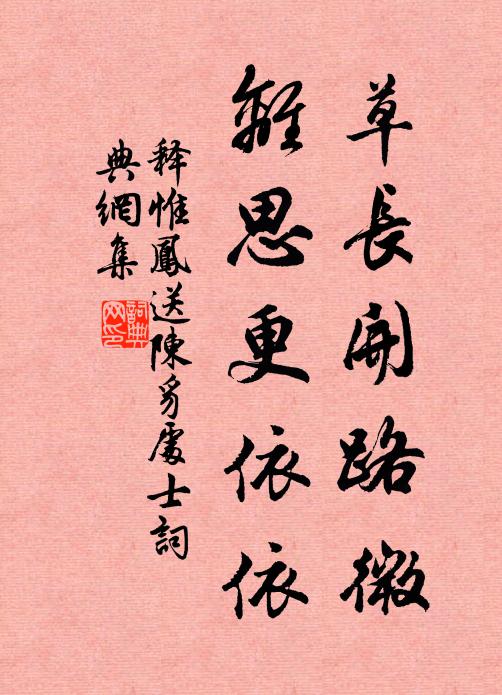 草長開路微
離思更依依
释惟鳳送陳豸處士詞
典網集
詞典
网印